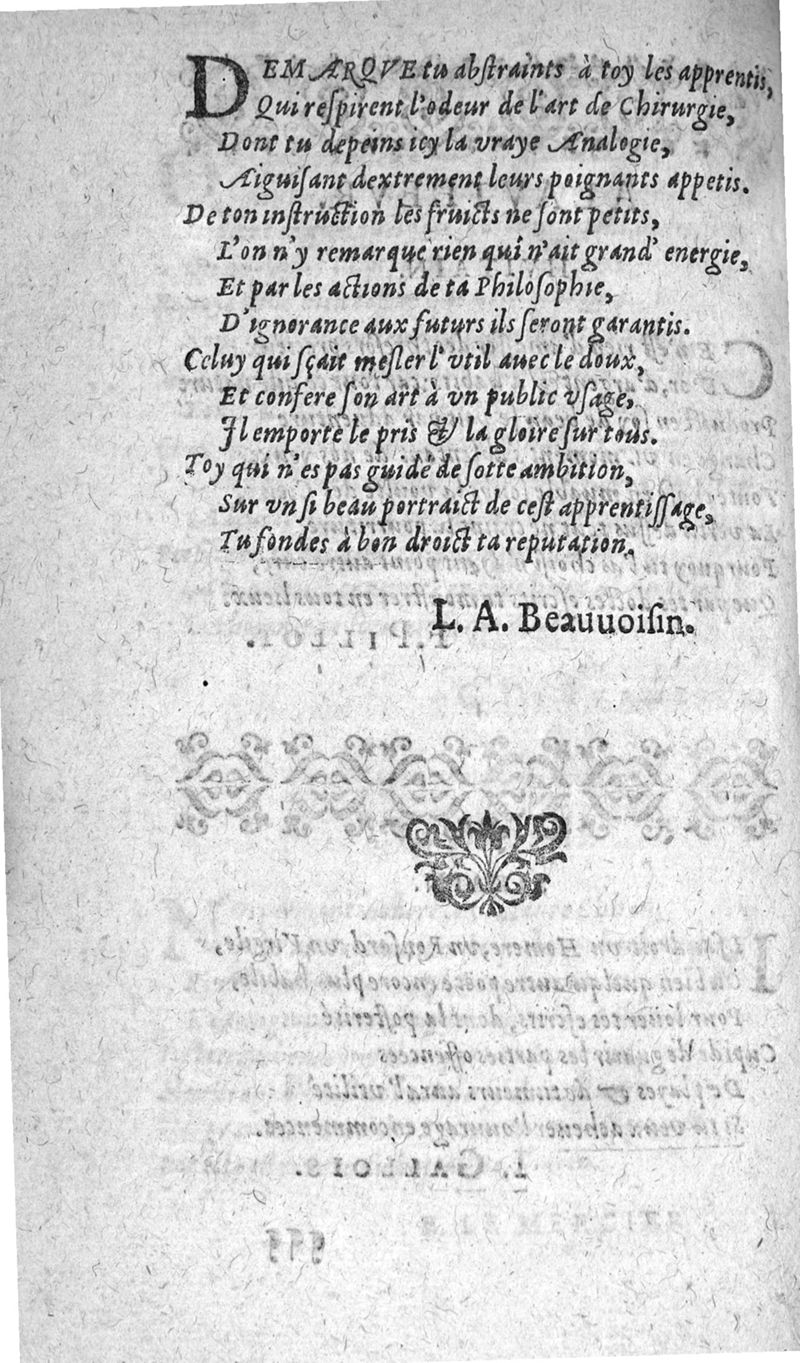 DEMARQVE tu abſtraints à toy les apprentis,
Qui reſpirent l'odeur de l'art de Chirurgie,
Dont tu depeins icy la vraye Analogie,
Aiguiſant dextrement leurs poignants appetis.
De ton inſtruction les fruicts ne ſont petits,
L'on n'y remarque rien qui n'ait grand' energie,
Et par les actions de ta Philoſophie,
D'ignorance aux futurs ils ſeront garantis.
Celuy qui ſçait meſler l'vtil auec le doux,
Et confere ſon art à vn public vſage,
Il emporte le pris & la gloire ſur tous.
Toy qui n'es pas guidé de ſotte ambition,
Sur vn ſi beau portraict de ceſt apprentiſſage,
Tu fondes à bon droict ta reputation.
L. A. Beauuoiſin.